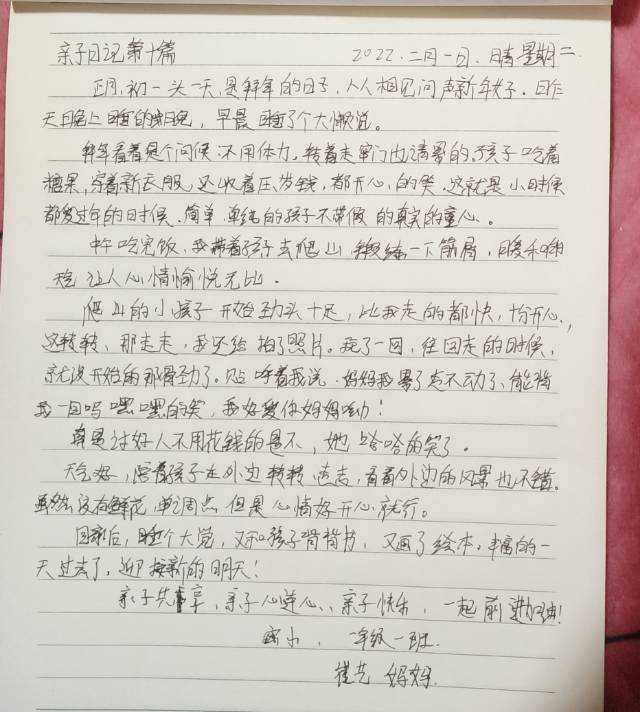 亲子日记第十篇 2022.二月一日.晴 星期二
正月初一头一天,是拜年的日子,人人相见问声新年好.昨
天晚上睡的很晚,早晨睡了个大懒觉。
拜年看着是个问候.不用体力.转着走家门也满累的.孩子吃着
糖果,穿着新衣服,还收着压岁钱,都开心的笑.这就是小时候
都爱过年的时候.简单.单纯的孩子不带假的真实的童心。
中午吃完饭,我带着孩子去爬山.锻练一下筋骨,暖和
让人心情愉悦无比.
爬山的小孩子开始劲头十足,比我走的都快,十分开心.,
这转转、那走走,我还给拍了照片。玩了一回,往回走的时候,
就没开始的那股劲了。呼着我说.妈妈我累了走不动了,能背
我一回吗嘿嘿的笑,我好爱你妈妈呦!
真是讨好人不用花钱的是不,她哈哈的笑了.
天气好,陪着孩子在外边转转.走走,看看外边的风景也不错。
虽然没有鲜花,单调点但是心情好开心就行。
回家后,睡个大觉,又和孩子背背书,又画了绘本.丰富的一
天过去了,迎接新的明天!
亲子共享,亲子心连心、亲子快乐,一起前进加油!
小.一年级一班.
崔艺 妈妈.